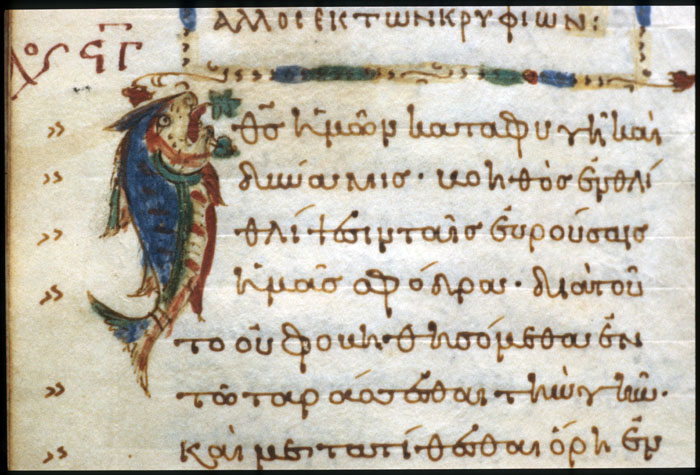 ΑΛΛΟΣ ΕΚ ΤΩΝ ΚΡΥΦΙΩΝ:
θς ἡμῶν καταφυγὴ καὶ
δύναμις · βοηθὸς ἐν θλί
θλίψεσιν ταῖς εὑρούσαις
ἡμᾶς σφόδρα · διὰ τοῦ
το οὐ φοβηθησόμεθα ἐν
τῶ ταράσσεσθαι τὴν γῆν ·
καὶ μετατίθεσθαι ὄρη ἐν